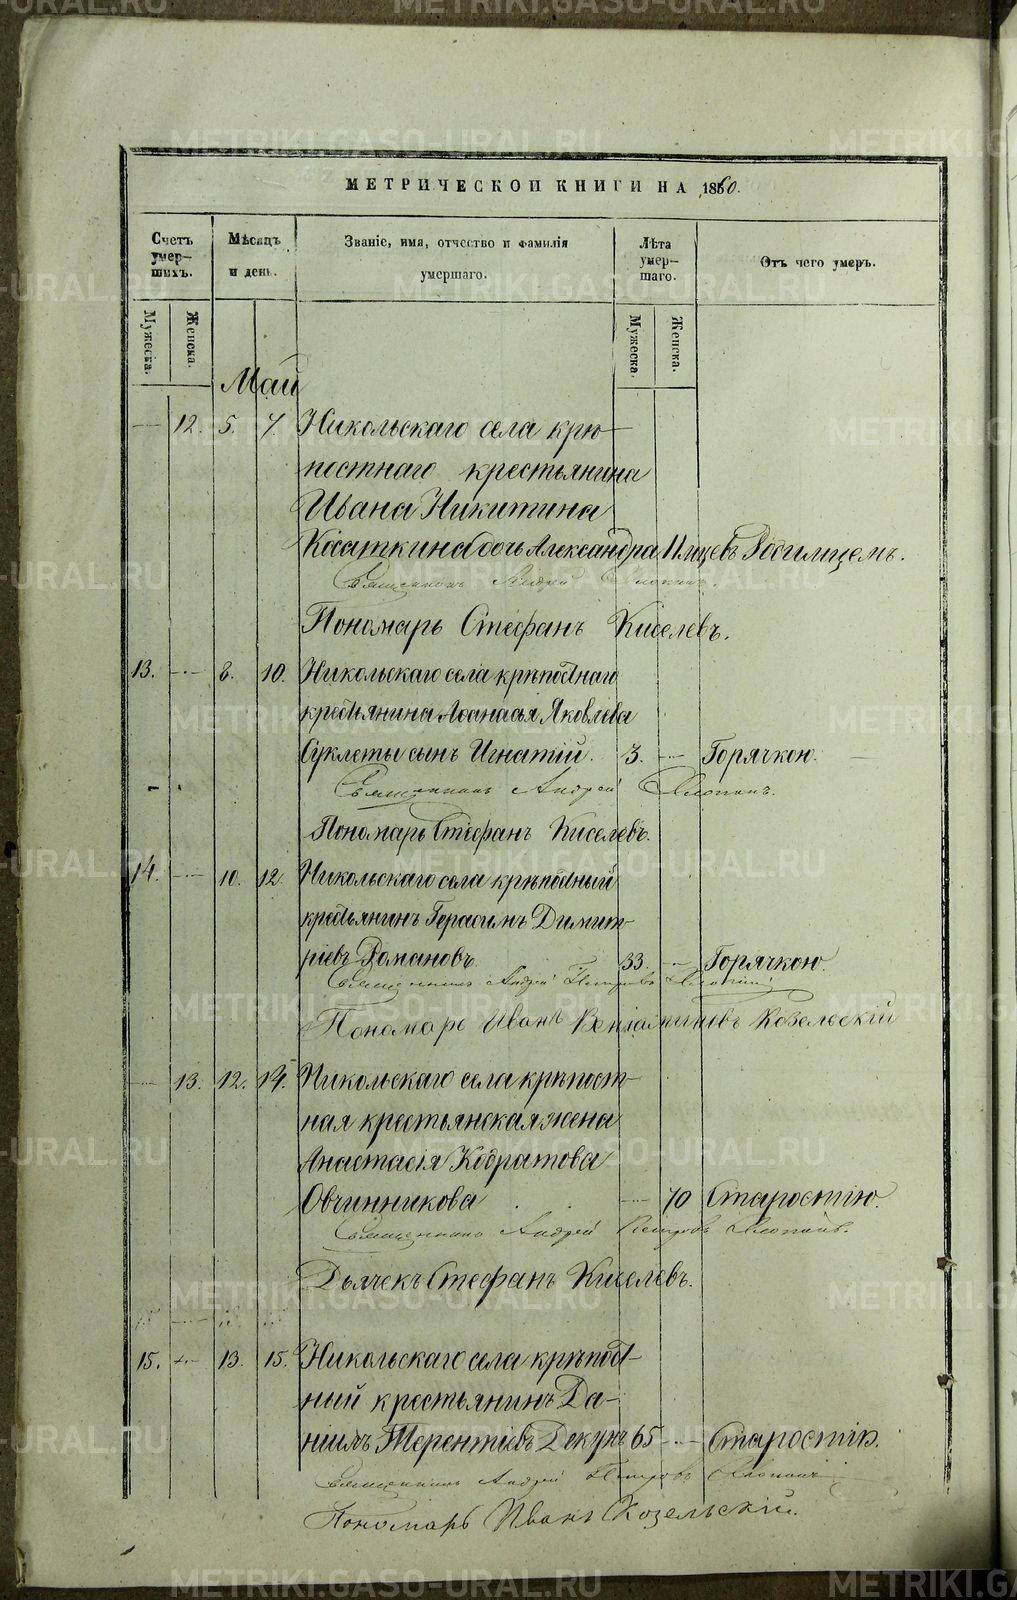 МЕТРИЧЕСКОЙ КНИГИ НА 1860.
Счетъ умер-шихъ.
Мѣсяцъ и день.
Званіе, имя, отчество и фамилія умершаго.
Лѣта умер-шаго.
Отъ чего умеръ.
Мужеска.
Женска.
Мужеска.
Женска.
Май
— 12. 5. 7. Никольскаго села крѣ-
постнаго крестьянина
Ивана Никитина
Касаткина дочь Александра 11 мцевъ Родимцемъ.
Священникъ Андрей
Пономарь Стефанъ Киселевъ.
13. — 8. 10. Никольскаго села крѣпостнаго
крестьянина Афанасья Яковлева
сынъ Игнатій. 3. — Горячкою.
Священникъ Андрей
Пономарь Стефанъ Киселевъ.
14. — 10. 12. Никольскаго села крѣпостный
крестьянинъ Герасимъ Димит-
ріевъ Романовъ 33. — Горячкою.
Священникъ Андрей Петровъ
Пономарь Иванъ Веніаминовъ Козельскій
— 13. 12. 14. Никольскаго села крѣпост-
ная крестьянская жена
Анастасія Кодратова
Овчинникова — 70 Старостію.
Священникъ Андрей Петровъ
Дьячекъ Стефанъ Киселевъ.
15. — 13. 15. Никольскаго села крѣпост-
ный крестьянинъ Да-
ніилъ Терентіевъ Декунъ 65 — Старостію.
Священникъ Андрей Петровъ
Пономарь Иванъ Козельскій.
METRIKI.GASO-URAL.RU